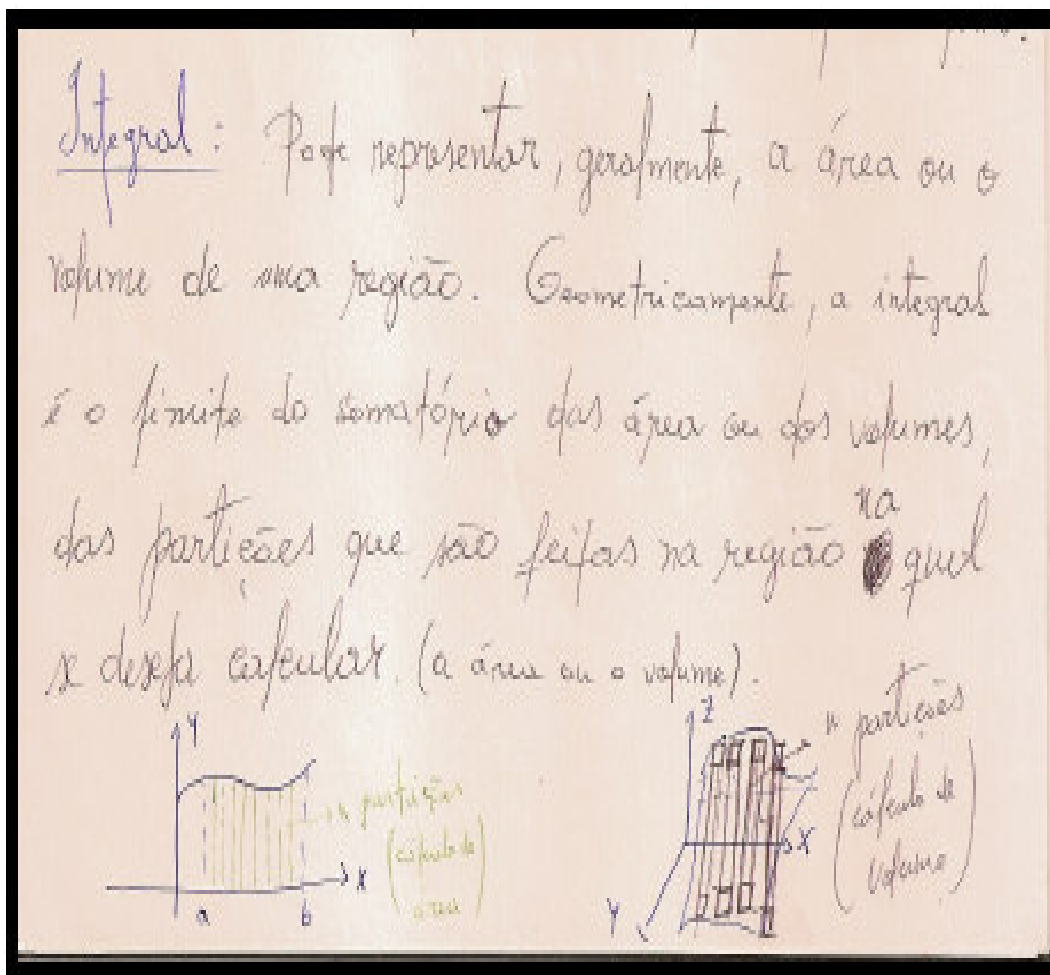 Integral: Pode representar, geralmente, a área ou o
volume de uma região. Geometricamente, a integral
é o limite do somatório das área ou dos volumes,
das partições que são feitas na região na qual
se deseja calcular. (a área ou o volume).
Y
n partições
(cálculo de
área)
X
a b
Z
n partições
(cálculo de
volume)
X
Y